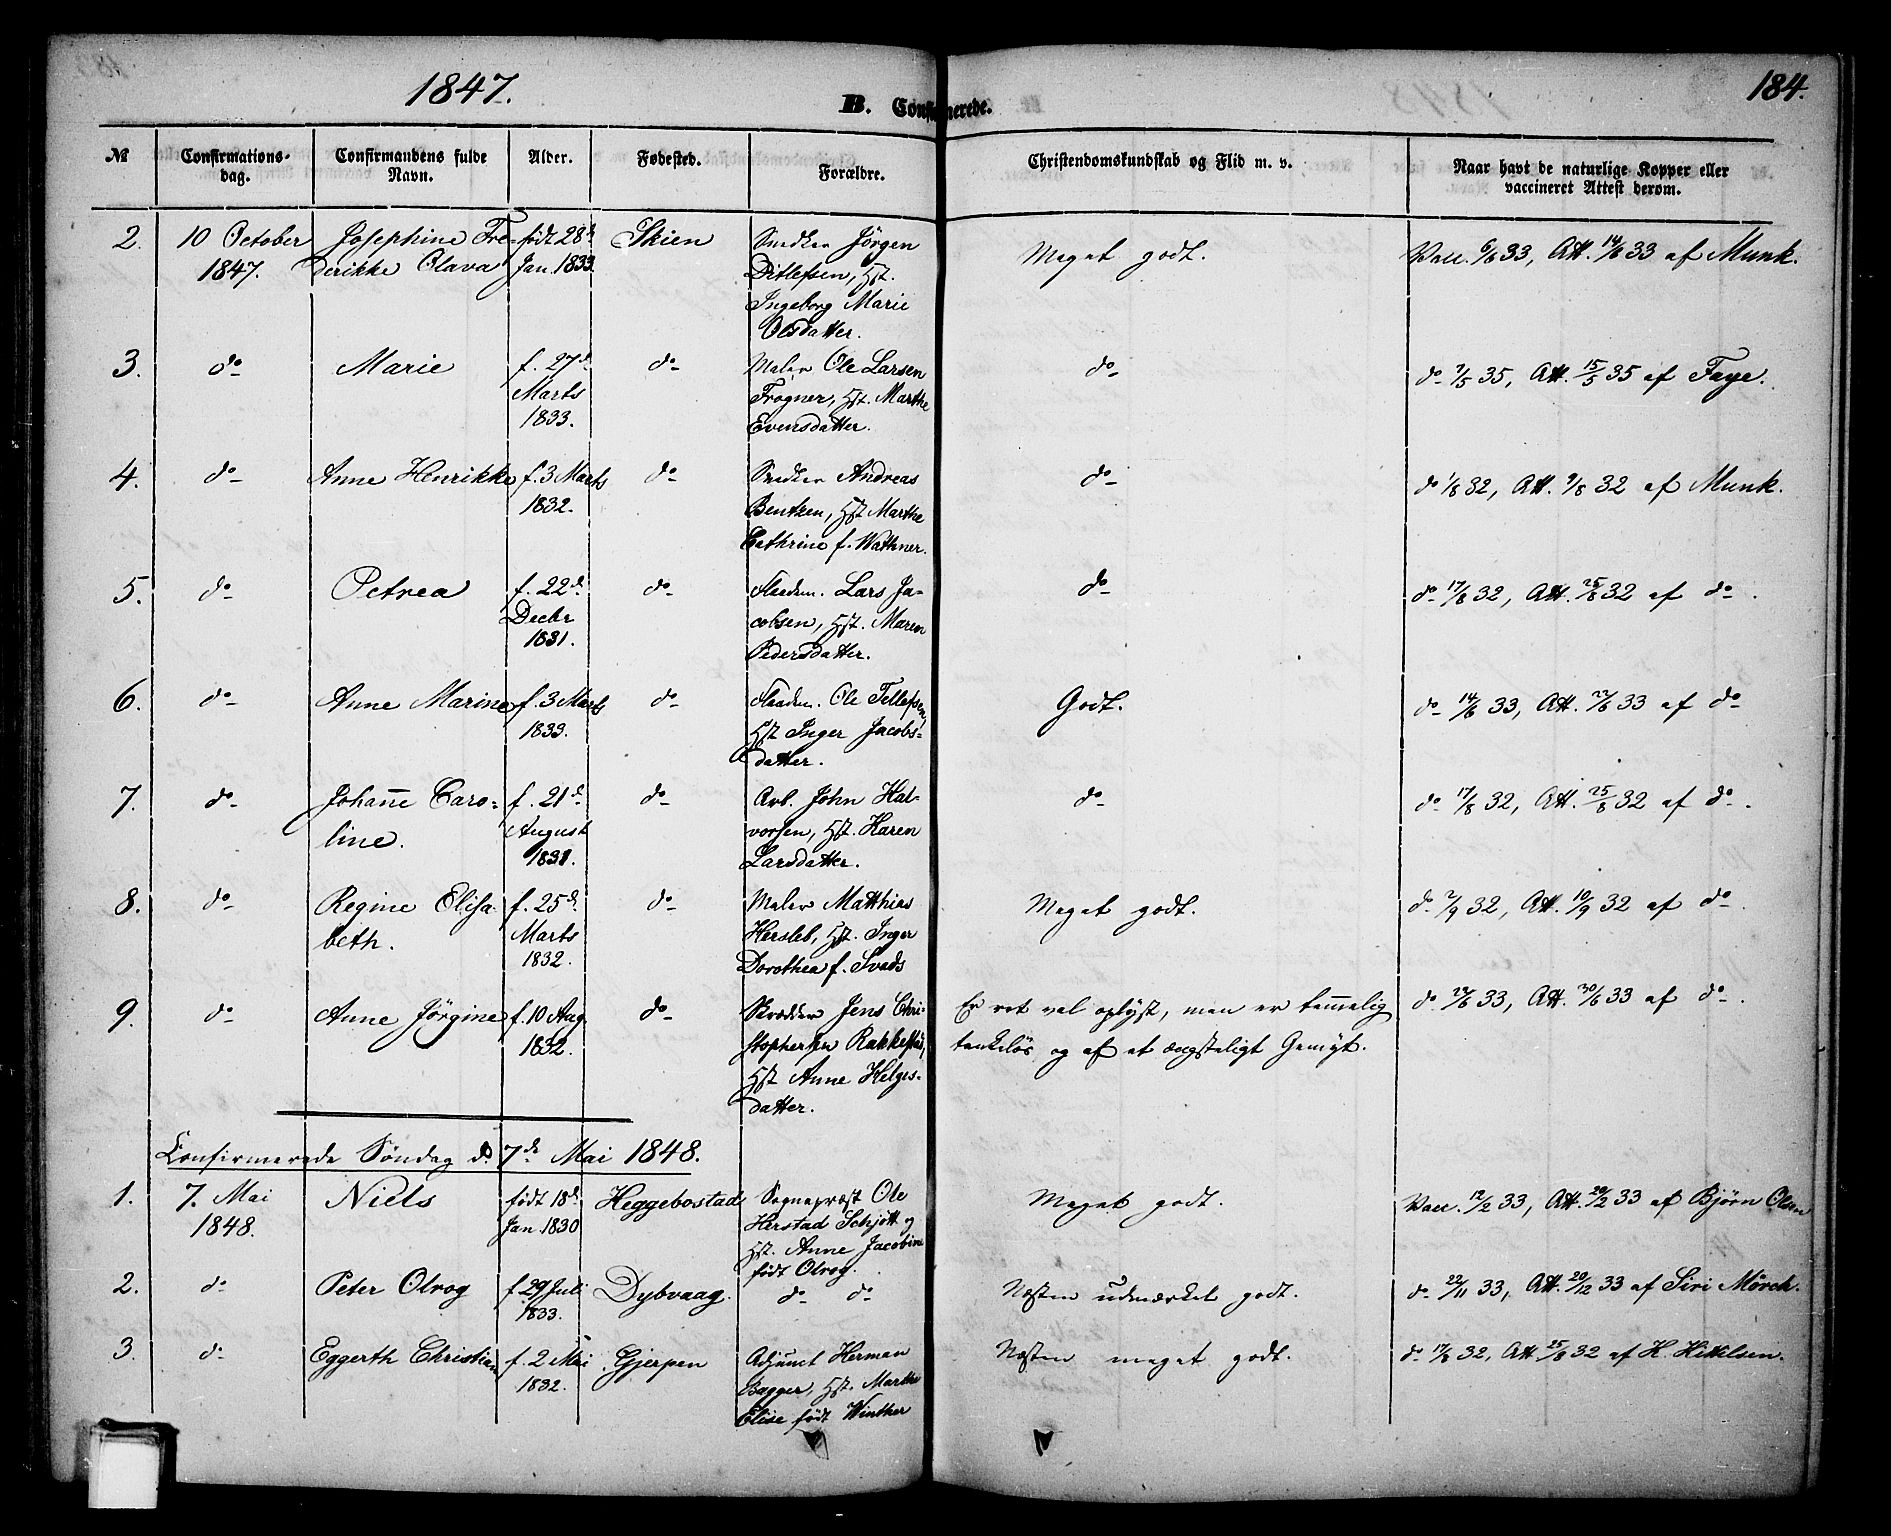 1847.
184.
B. Confirmerede.
№
Confirmations-
dag.
Confirmandens fulde
Navn.
Alder.
Fødested.
Forældre.
Christendomskundskab og Flid m. v.
Naar havt de naturlige Kopper eller
vaccineret Attest derom.
2. 10 October Josephine Fre- født 28d Skien Snedker Jörgen Meget godt. Vacc. 6/6 33, Att. 14/6 33 af Munk.
1847. derikke Olava Jan. 1833 Ditlefsen, Hst.
Ingeborg Marie
Olsdatter.
3. do Marie f. 27d do Maler Ole Larsen do do 7/5 35, Att. 15/5 35 af Faye.
Marts Frogner, Hst. Marthe
1833. Evensdatter.
4. do Anne Henrikke f. 3 Marts do Snedker Andreas do do 1/8 32, Att. 9/8 32 af Munk.
1832. Bentzen, Hst Marthe
Cathrine f. Wathner.
5. do Petrea f. 22d do Flaadm. Lars Ja- do do 17/8 32, Att. 25/8 32 af do.
Decbr cobsen, Hst. Maren
1831. Pedersdatter.
6. do Anne Marine f. 3 Marts do Flaadm. Ole Tellefsen, Godt. do 14/6 33, Att. 22/6 33 af do
1833. Hst Inger Jacobs-
datter.
7. do Johanne Caro- f. 21d do Arb. John Hal- do do 17/8 32, Att. 25/8 32 af do.
line. August vorsen, Hst. Karen
1831. Larsdatter.
8. do Regine Elisa- f. 25d do Maler Matthias Meget godt. do 2/9 32, Att. 10/9 32 af do.
beth. Marts Hersleb, Hst. Inger
1832. Dorothea f. Svads
9. do Anne Jörgine f. 10 Aug do Skrædder Jens Chri- Er ret vel oplyst, men er temmelig do 22/6 33, Att. 30/6 33 af do.
1832. stophersen Rakkestad, tankelös og af et ængsteligt Gemyt.
Hst Anne Helges-
datter.
Confirmerede Søndag d. 7de Mai 1848.
1. 7. Mai Niels født 18d Heggebostad Sognepræst Ole Meget godt. Vacc. 12/2 33, Att. 20/2 33 af Bjørn Olsen
1848. Jan. 1830 Herstad Schjött og
Hst. Anne Jacobine
født Olrog.
2. do Peter Olrog f. 29 Juli Dybvaag. do do Næsten udmærket godt. do 22/11 33, Att. 20/12 33 af Siri Mörch.
1833.
3. do Eggerth Christian f. 2 Mai Gjerpen Adjunct Herman Næsten meget godt. do 17/8 32, Att. 25/8 32 af H. Hittelsen.
1832. Bagger, Hst. Marthe
Elise født Winther